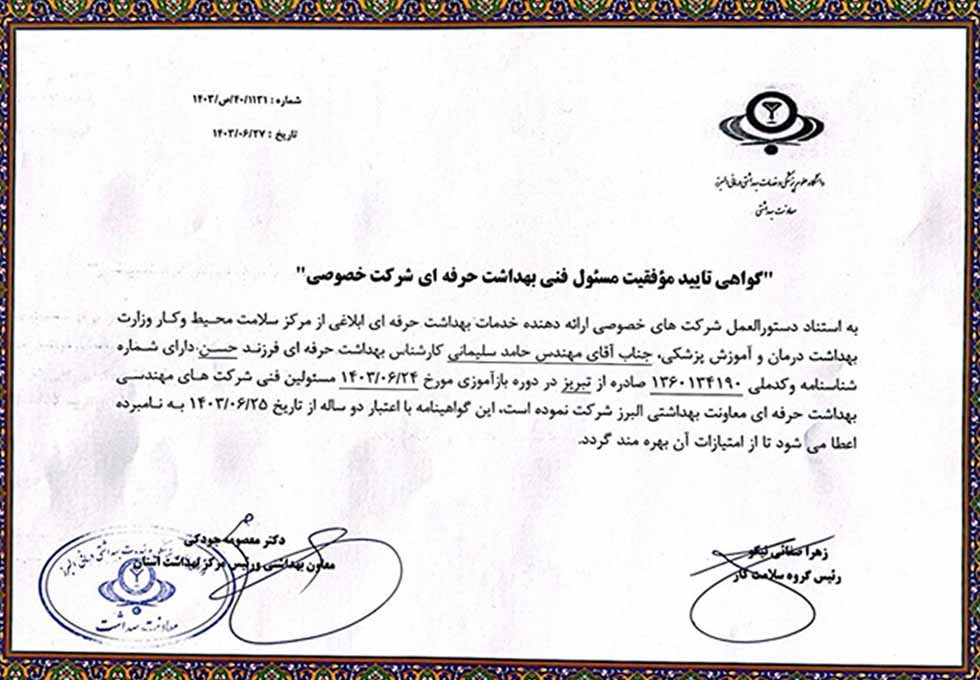 شماره : ۴۰/۱۱۳۱/ص/۱۴۰۳
تاریخ : ۱۴۰۳/۰۶/۲۷
دانشگاه علوم پزشکی و خدمات بهداشتی درمانی البرز
معاونت بهداشتی
"گواهی تایید مؤفقیت مسئول فنی بهداشت حرفه ای شرکت خصوصی"
به استناد دستورالعمل شرکت های خصوصی ارائه دهنده خدمات بهداشت حرفه ای ابلاغی از مرکز سلامت محیط وکار وزارت
بهداشت درمان و آموزش پزشکی، جناب آقای مهندس حامد سلیمانی کارشناس بهداشت حرفه ای فرزند حسن دارای شماره
شناسنامه وکدملی ۱۳۶۰۱۳۴۱۹۰ صادره از تبریز در دوره بازآموزی مورخ ۱۴۰۳/۰۶/۲۴ مسئولین فنی شرکت های مهندسی
بهداشت حرفه ای معاونت بهداشتی البرز شرکت نموده است، این گواهینامه با اعتبار دو ساله از تاریخ ۱۴۰۳/۰۶/۲۵ به نامبرده
اعطا می شود تا از امتیازات آن بهره مند گردد.
زهرا صفائی نیکو
رئیس گروه سلامت کار
دکتر معصومه جودکی
معاون بهداشتی ورئیس مرکز بهداشت استان
معاونت بهداشت